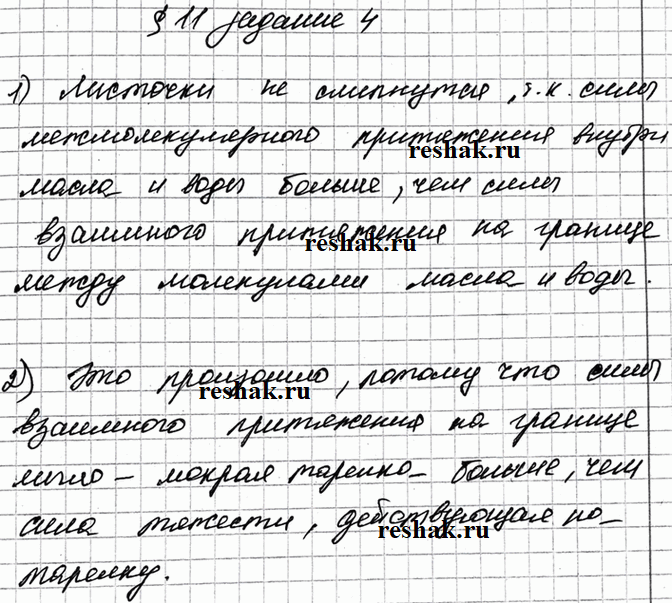 § 11 задание 4
1) Листочки не слипнутся, т.к. силы
межмолекулярного притяжения внутри
reshak.ru
масла и воды больше, чем силы
взаимного притяжения на границе
reshak.ru
между молекулами масла и воды.
2) Это произошло, потому что силы
reshak.ru
взаимного притяжения на границе
мыло – мокрая тарелка больше, чем
сила тяжести, действующая на
reshak.ru
тарелку.